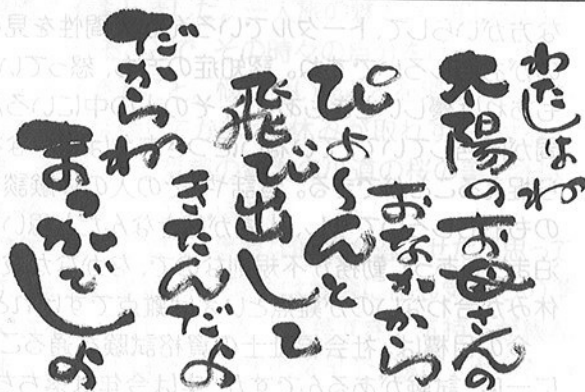 わたしはね
太陽のお母さんの
おなかから
ぴょ〜んと
飛び出して
きたんだよ
だからね
まっかでしょ